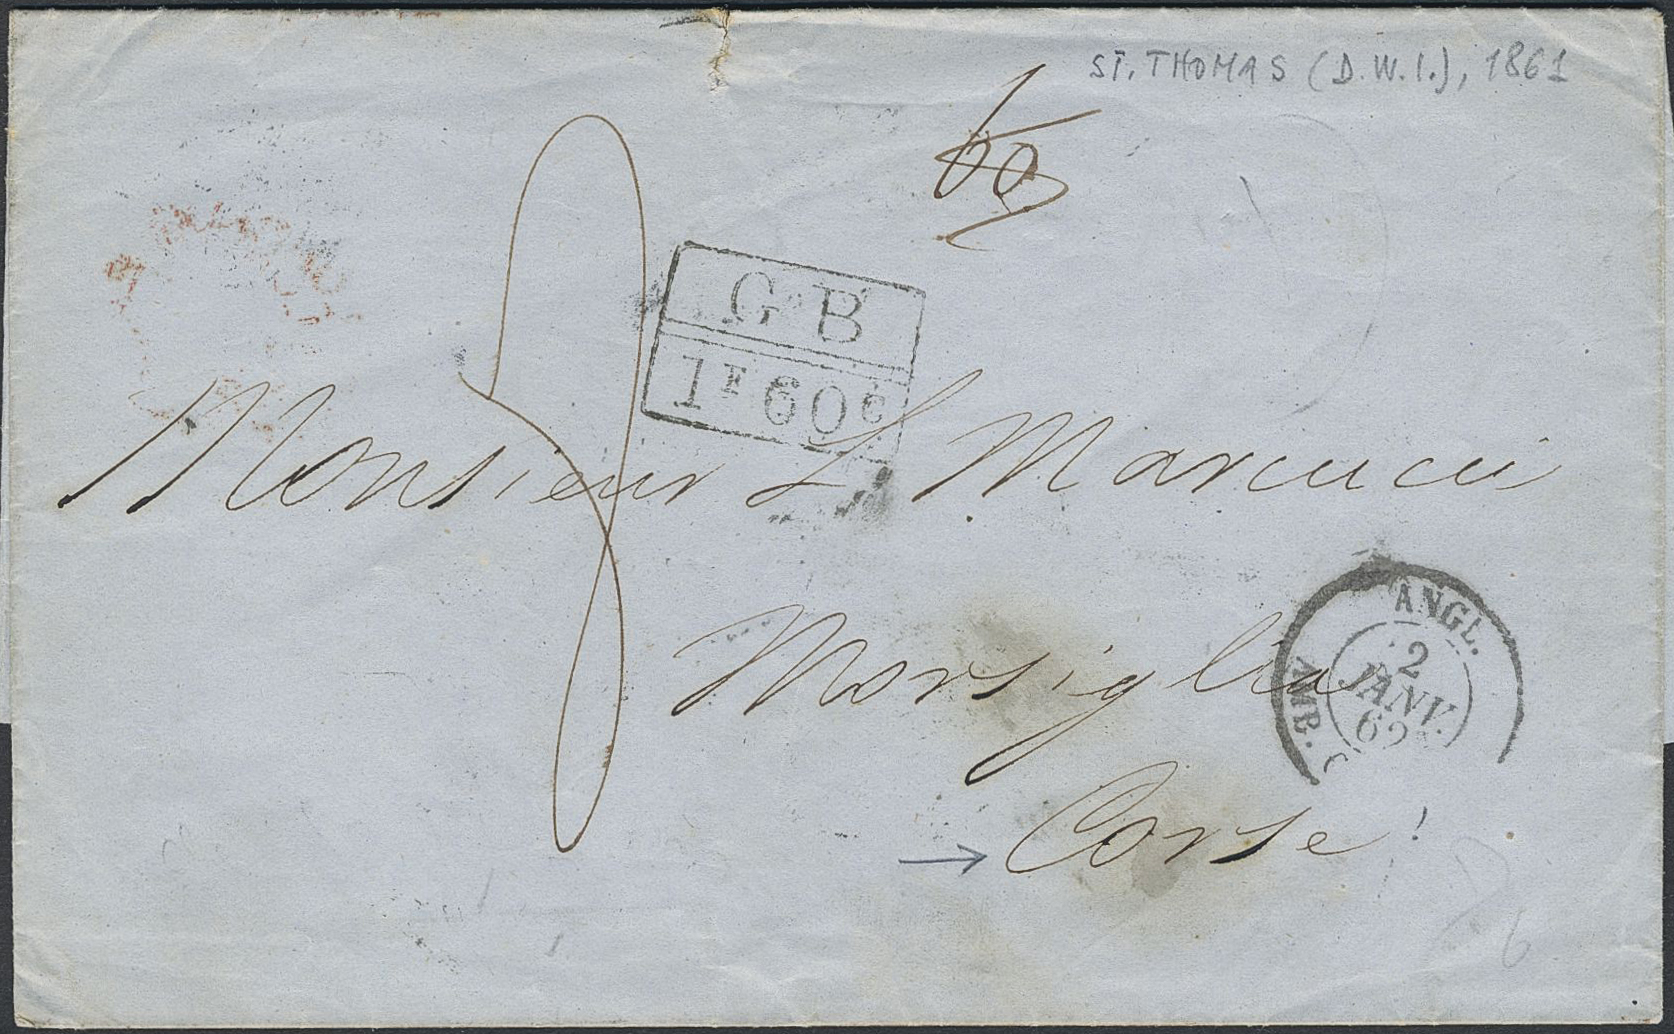 ST. THOMAS (D.W.I.), 1861
60
G B
1F60c
8
Monsieur L Marcucci
Morsiglia
Corse
ANGL.
2
JANV.
62
AMB. C
6